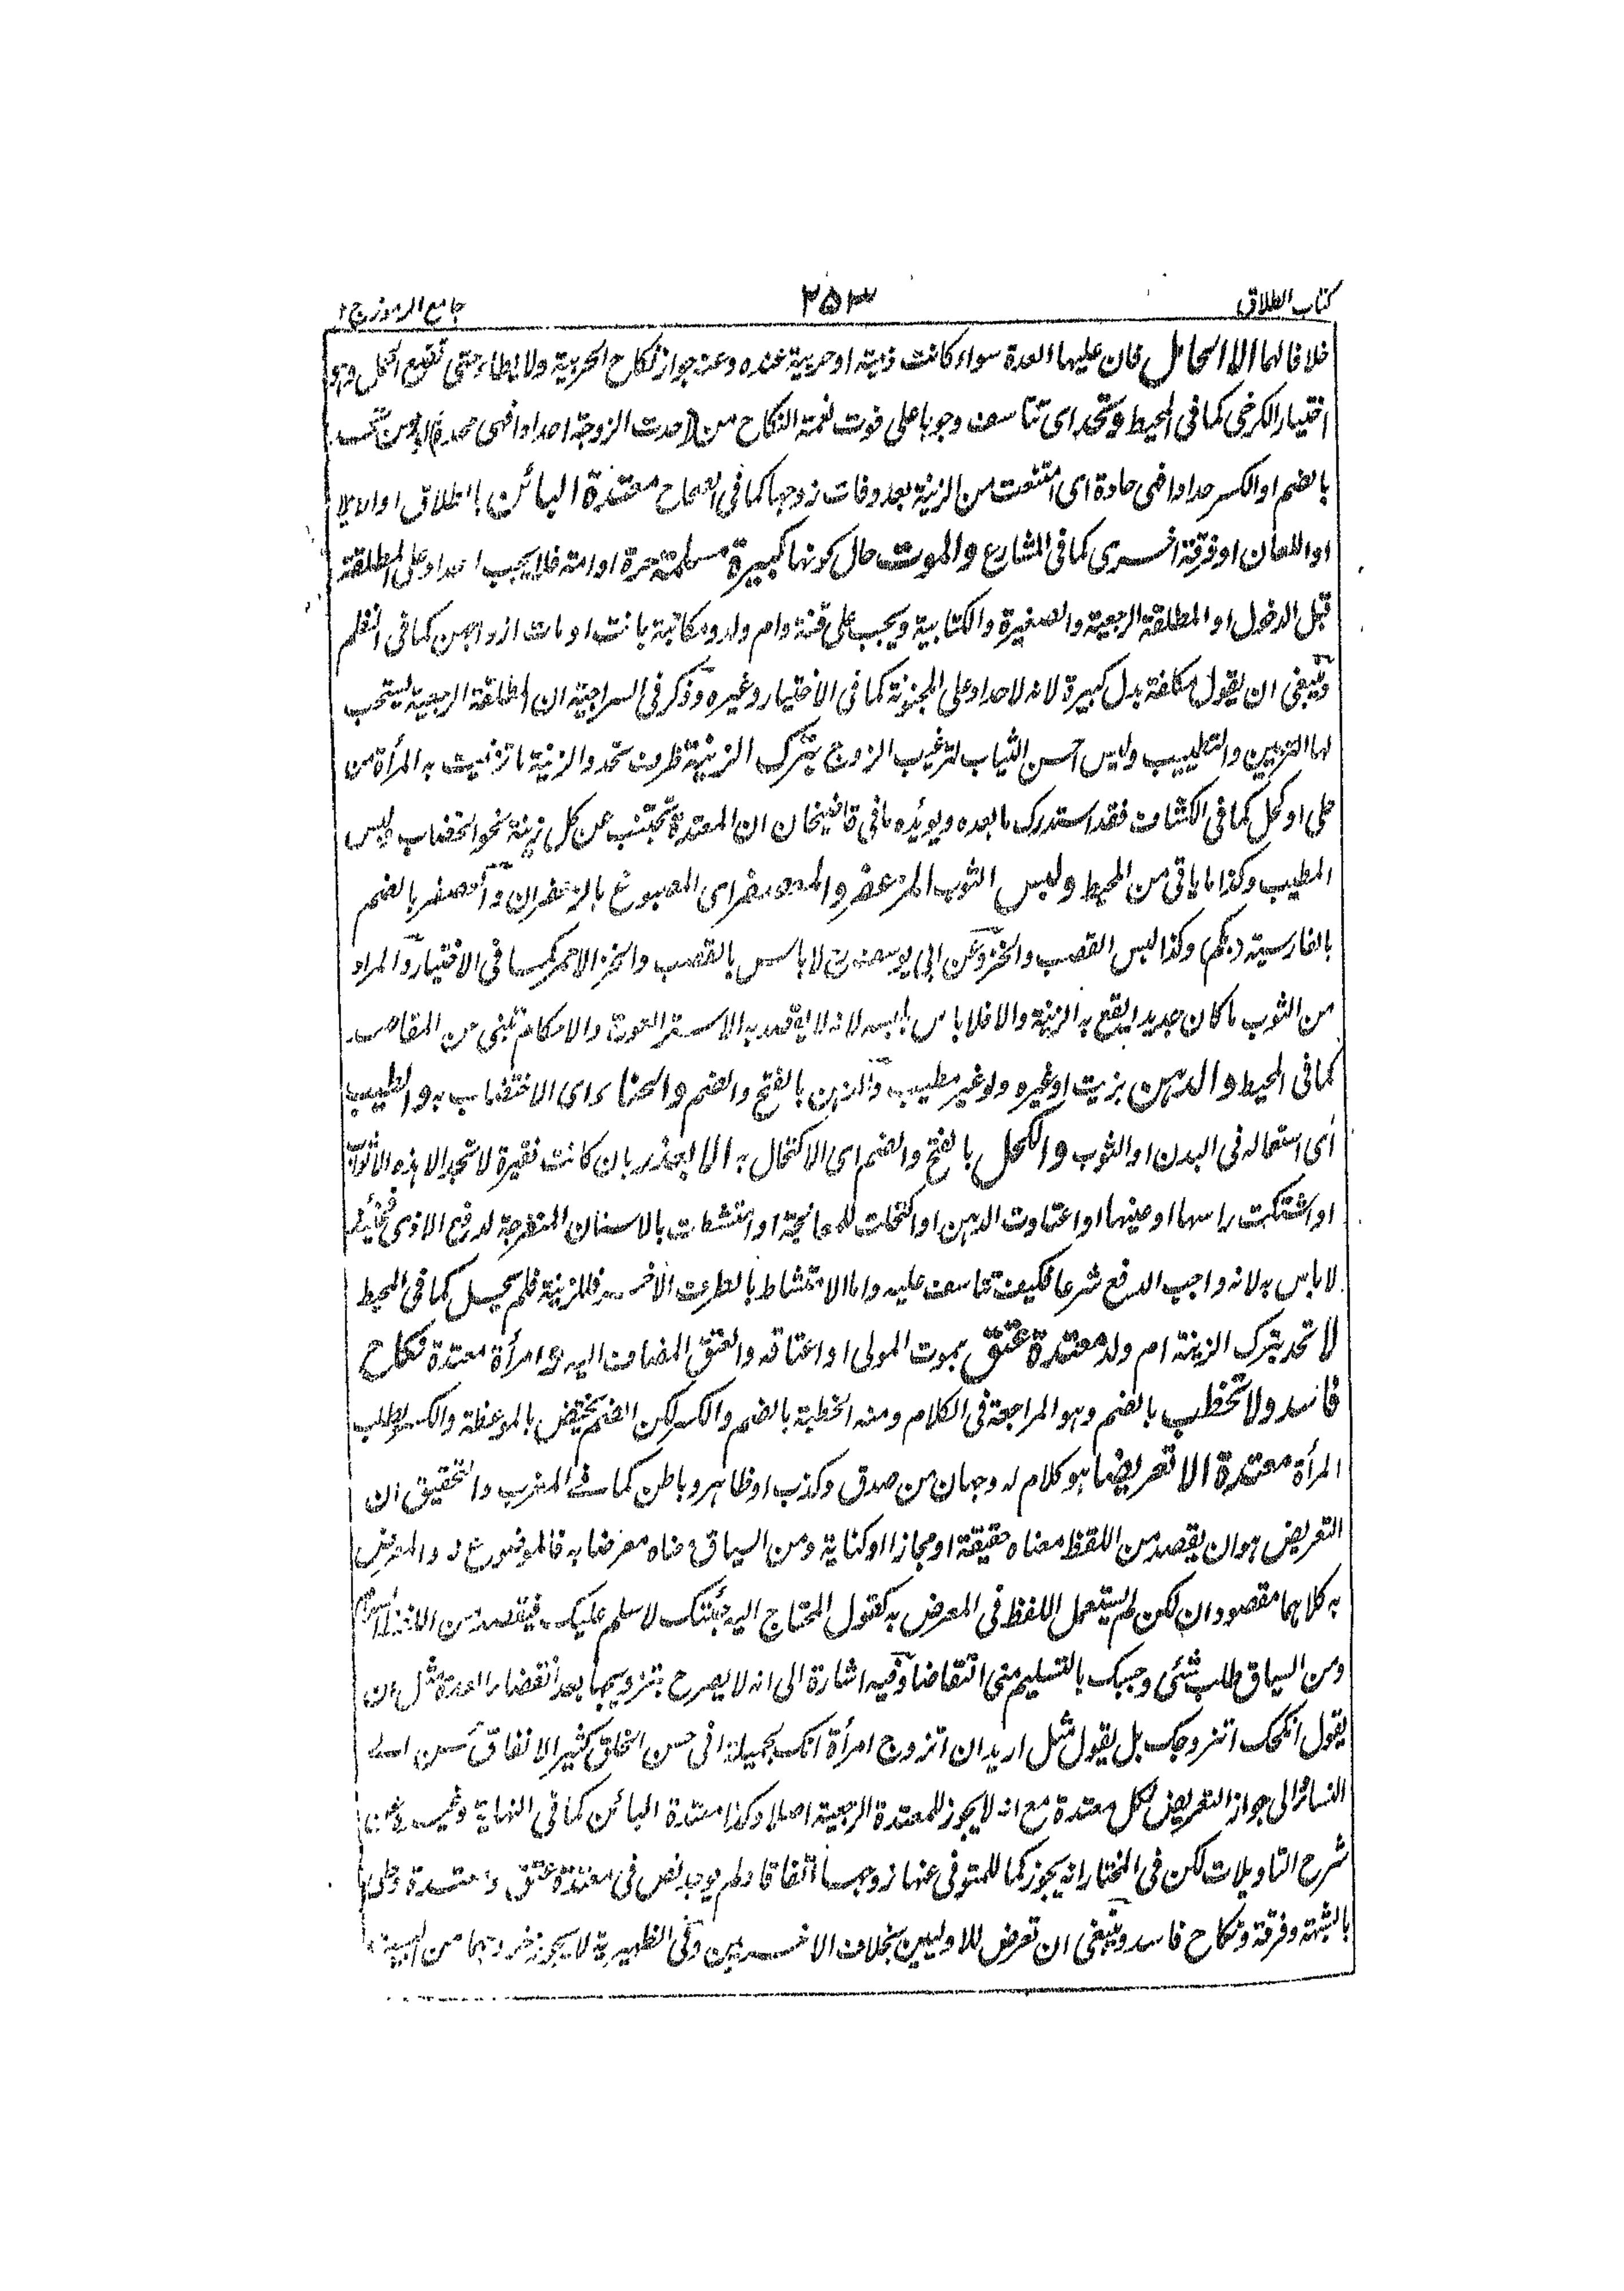 كتاب الطلاق
٢٥٣
جامع الرموز ج ١
خلافا لهما الا الحامل فان عليها العدة سواء كانت ذمية او حربية عنده وعنه جواز نكاح الحربية ولا يطاء حتى تضع الحمل وهو
اختيار الكرخى كما فى المحيط وتحد اى تتاسف وجوبا على فوت نعمة النكاح من احدت الزوجة احدادا فهى محدة
بالضم او الكسر حدادا فهى حادة اى امتنعت من الزينة بعد وفات زوجها كما فى الصحاح معتدة البائن بالطلاق او الايلا
او اللعان او فرقة اخرى كما فى المشارع والموت حال كونها كبيرة مسلمة حرة او امة فلا يجب احداد على المطلقة
قبل الدخول او المطلقة الرجعية والصغيرة والكتابية ويجب على قنة وام ولد ومكاتبة بانت او مات ازواجهن كما فى النظم
وينبغى ان يقول مكلفة بدل كبيرة لانه لا حداد على المجنونة كما فى الاختيار وغيره وذكر فى السراجية ان المطلقة الرجعية يستحب
لها التزيين والتطييب ولبس احسن الثياب لترغيب الزوج بترك الزينة ظرف تحد والزينة ما تزينت به المرأة من
حلى او كحل كما فى الكشاف فقد استدرك ما بعده ويؤيده ما فى قاضيخان ان المعتدة تجتنب عن كل زينة نحو الخضاب ولبس
المطيب وكذا ما ياتى من المحيط ولبس الثوب المزعفر والمعصفر اى المصبوغ بالزعفران والعصفر بالضم
بالفارسية وكذا لبس القصب والخز وعن ابى يوسف رح لا باس بالقصب والخز الاحمر كما فى الاختيار والمراد
من الثوب ما كان جديدا يقع به الزينة والا فلا باس بلبسه لانه لا يقصد به الا ستر العورة والاحكام تبنى عن المقاصد
كما فى المحيط والدهن بزيت او غيره ولو غير مطيب والدهن بالفتح والضم والحناء اى الاختضاب به والطيب
اى استعماله فى البدن او الثوب والكحل بالفتح والضم اى الاكتحال به الا بعذر بان كانت فقيرة لا تجد الا هذه الاثواب
او اشتكت راسها او عينها او اعتادت الدهن او اكتحلت للمعالجة او امتشطت بالاسنان المنفرجة لدفع الاذى فحينئذ
لا باس به لانه واجب الدفع شرعا فكيف تتاسف عليه واما الامتشاط بالطرف الاخر فللزينة فلم يحل كما فى المحيط
لا تحد بترك الزينة ام ولد معتدة عتق بموت المولى او اعتاقه والعتق المضاف اليه وامرأة معتدة نكاح
فاسد ولا تخطب بالضم وهو المراجعة فى الكلام ومنه الخطبة بالضم والكسر لكن الضم يختص بالموعظة والكسر بطلب
المرأة معتدة الا تعريضا هو كلام له وجهان من صدق وكذب او ظاهر وباطن كما فى المغرب والتحقيق ان
التعريض هو ان يقصد من اللفظ معناه حقيقة او مجازا او كناية ومن السياق معناه معرضا به فالموضوع له والمعرض
به كلاهما مقصود ان لكن لم يستعمل اللفظ فى المعرض به كقول المحتاج اليه جئتك لاسلم عليك فيقصد من اللفظ السلام
ومن السياق طلب شئى وجبك بالتسليم منى التقاضا وفيه اشارة الى انه لا يصرح بتزويجها بعد انقضاء العدة مثل ان
يقول انكحك اتزوجك بل يقول مثل اريد ان اتزوج امرأة انك لجميلة فى حسن الخلق كثير الانفاق
النسا الى جواز التعريض لكل معتدة مع انه لا يجوز للمعتدة الرجعية اصلا وكذا معتدة البائن كما فى النهاية وغيره وعن
شرح التاويلات لكن فى المختار انه يجوز كما للمتوفى عنها زوجها اتفاقا ولم يوجد نص فى معتدة عتق ومعتدة وطى
بالشبهة وفرقة ونكاح فاسد وينبغى ان تعرض للاوليين بخلاف الاخريين وفى الظهيرية لا يجوز خروجها من البيت